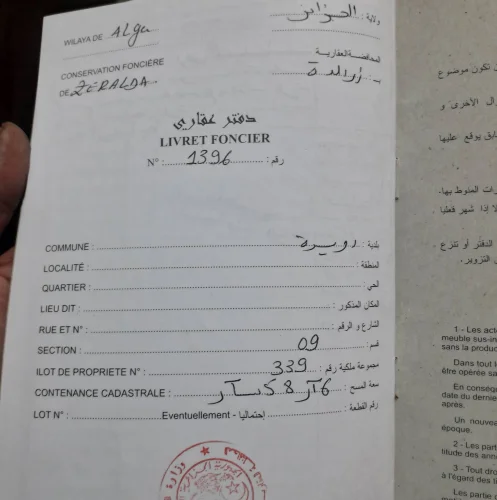 WILAYA DE Alger ولاية : الجزائر
المحافظة العقارية
CONSERVATION FONCIÈRE
DE ZERALDA بـ : زرالدة
دفتر عقاري
LIVRET FONCIER
N° : 1396 رقم :
COMMUNE : دويرة بلدية :
LOCALITÉ : المنطقة :
QUARTIER : الحي :
LIEU DIT : المكان المذكور :
RUE ET N° : الشارع و الرقم :
SECTION : 09 قسم :
ILOT DE PROPRIETE N° : 339 مجموعة ملكية رقم :
CONTENANCE CADASTRALE : 6آر 58 سآر سعة المسح :
LOT N° : Eventuellement - إحتماليا رقم القطعة :
تكون موضوع
الأخرى و
يوقع عليها
المنوط بها.
إذا شهر فعليا
الدفتر أو تنتزع
التزوير.
1 - Les act
meuble sus-in
sans la produc
Dans tout l
être opérée sa
En conség
date du dernie
après.
Un nouvea
époque.
2 - Les part
titude des anne
3 - Tout dro
à l'égard des t
Les partie